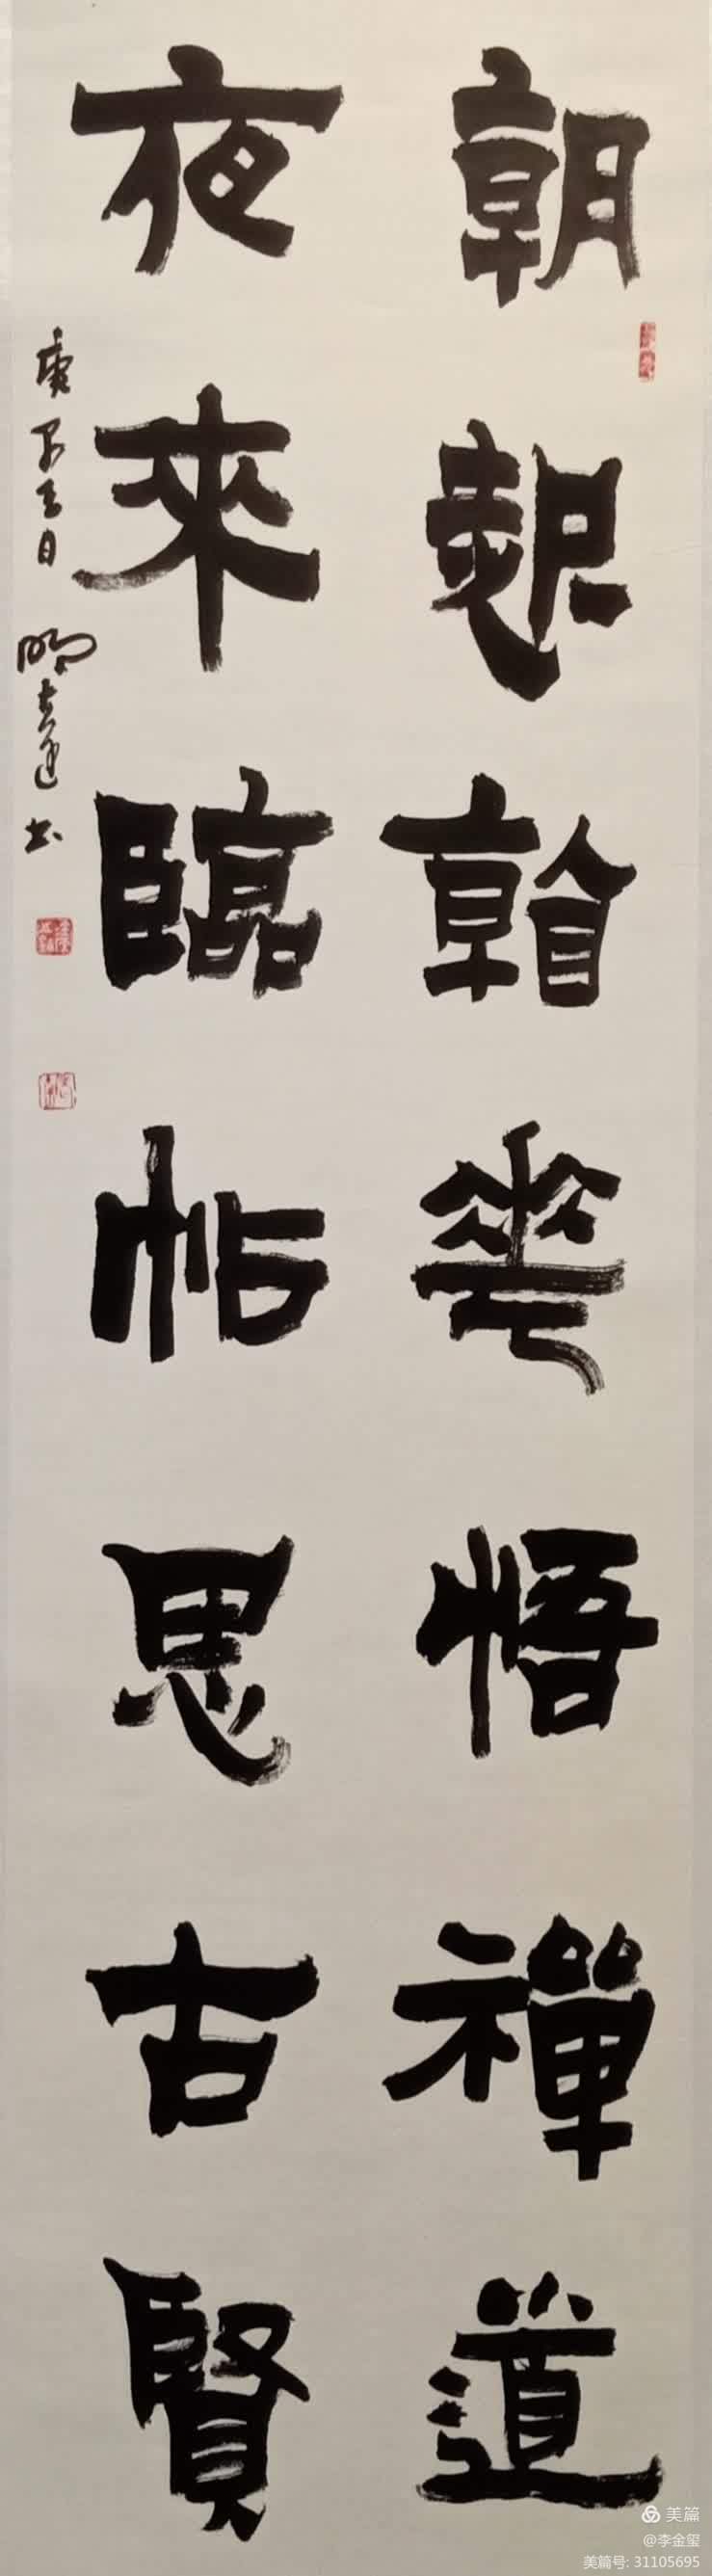 朝起看花悟禪道
夜來臨帖思古賢
庚子日書
美篇
@李金玺
美篇号: 31105695